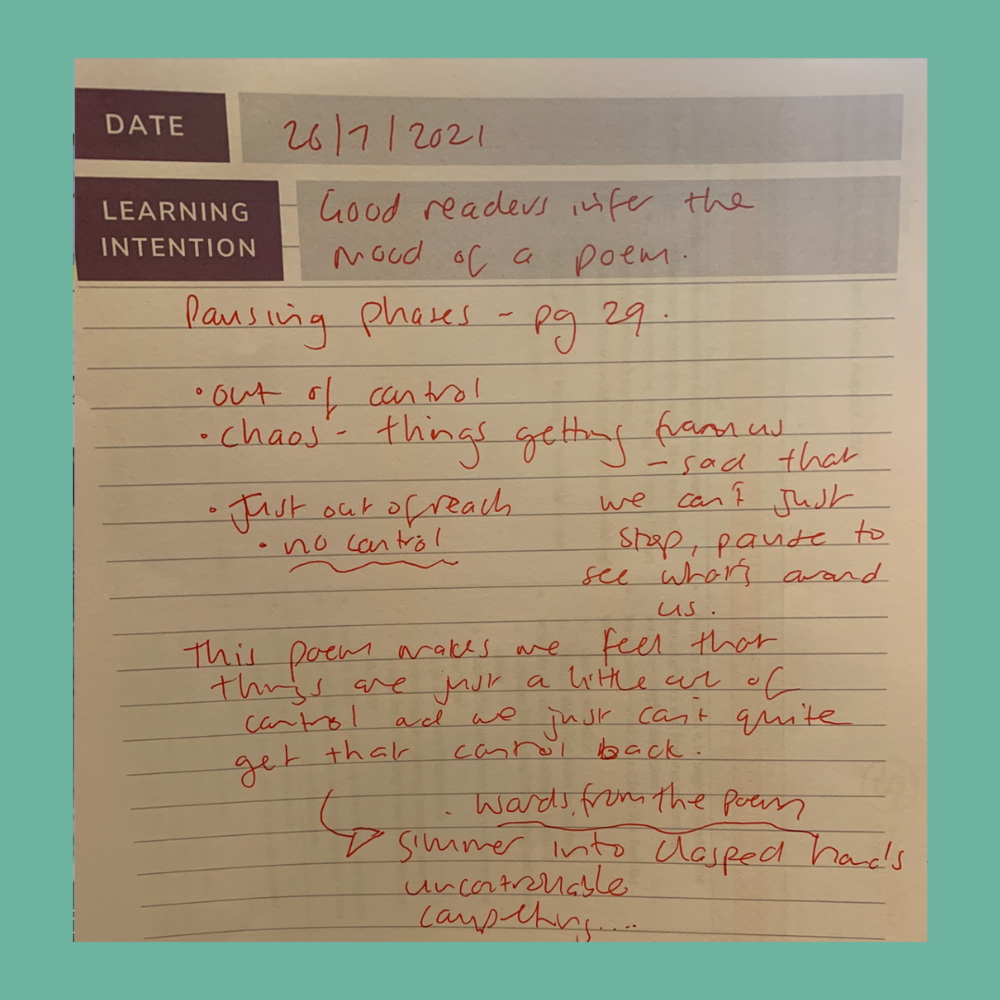 DATE
26/7/2021
LEARNING
INTENTION
Good readers infer the
mood of a poem.
Pausing phases - pg 29.
• out of control
• chaos - things getting from us
- sad that
we can't just
stop, pause to
see what's around
us.
• Just out of reach
• no control
This poem makes me feel that
things are just a little out of
control and we just can't quite
get that control back.
. words from the poem
simmer into clasped hands
uncontrollable